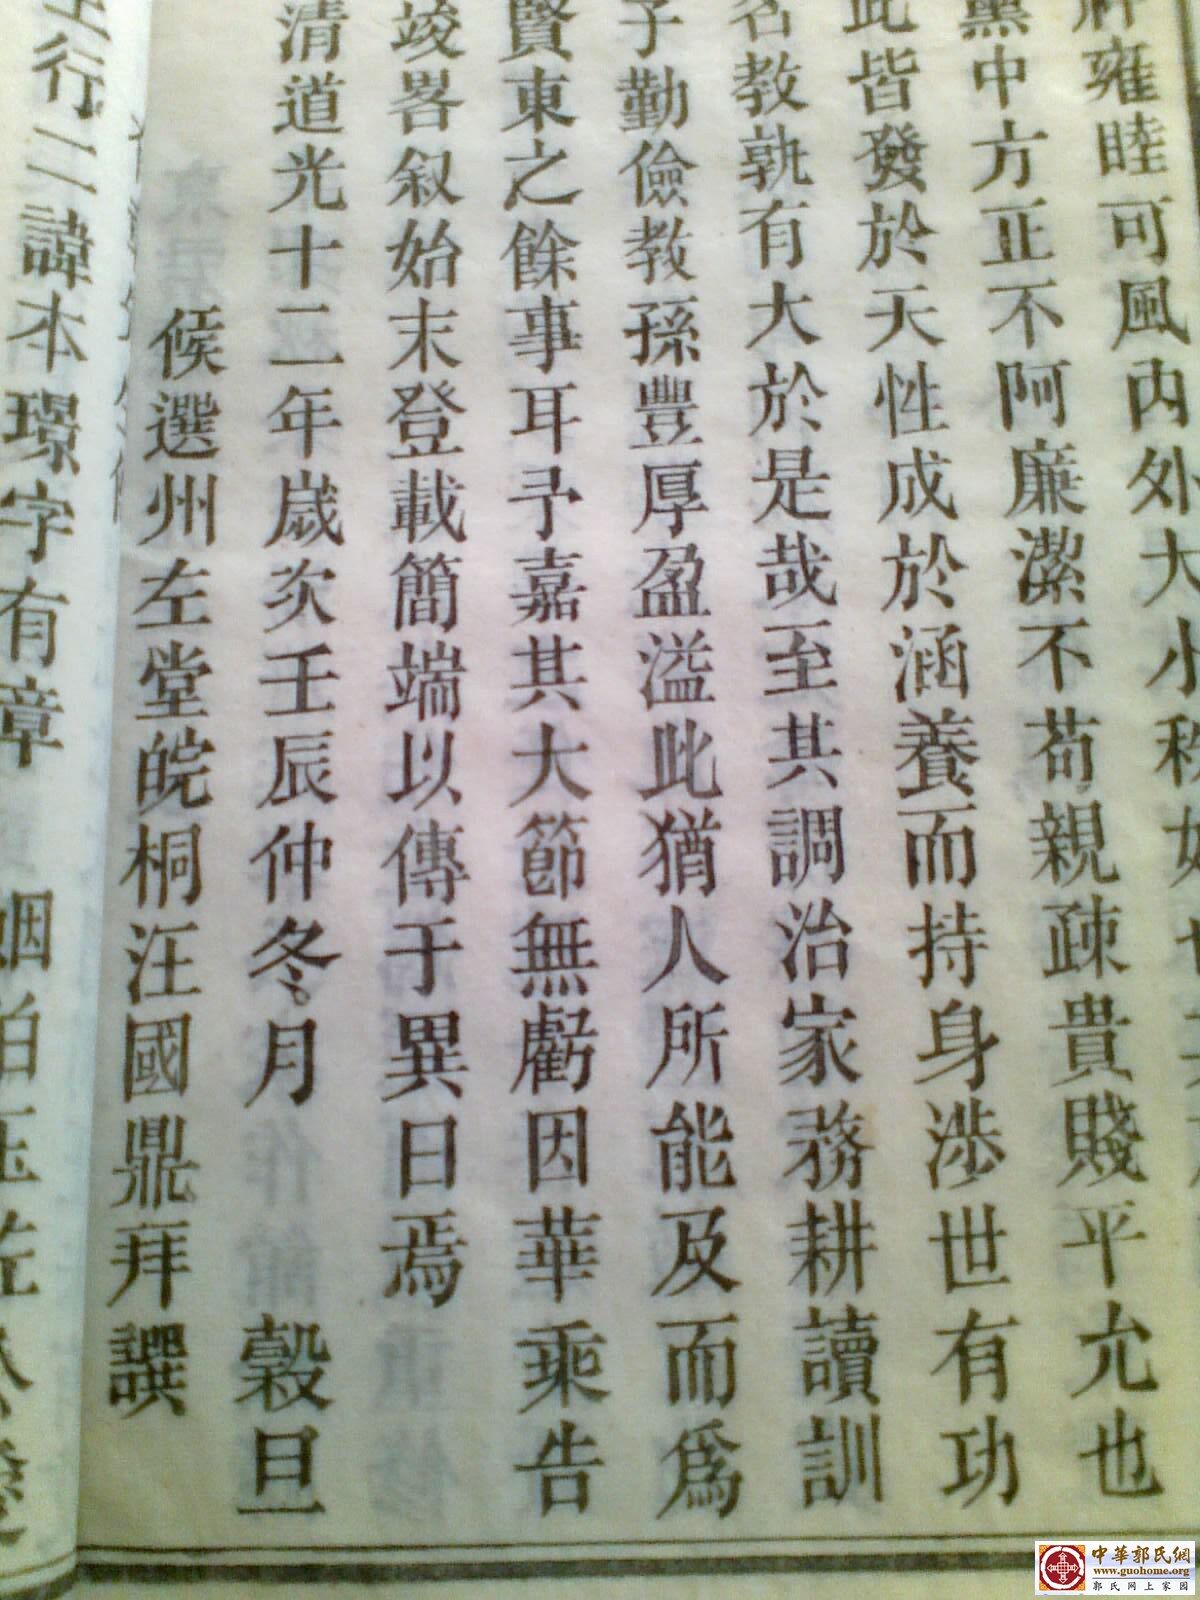 雍睦可風內外大小
黑中方正不阿廉潔不苟親疎貴賤平允也
此皆發於天性成於涵養而持身涉世有功
名教孰有大於是哉至其調治家務耕讀訓
子勤儉教孫豐厚盈溢此猶人所能及而爲
賢東之餘事耳予嘉其大節無虧因華乘告
竣畧叙始末登載簡端以傳于異日焉
清道光十二年歲次壬辰仲冬月 穀旦
候選州左堂皖桐汪國鼎拜譔
行二諱本璟字有章
中華郭氏網
www.guohome.org
郭氏网上家园